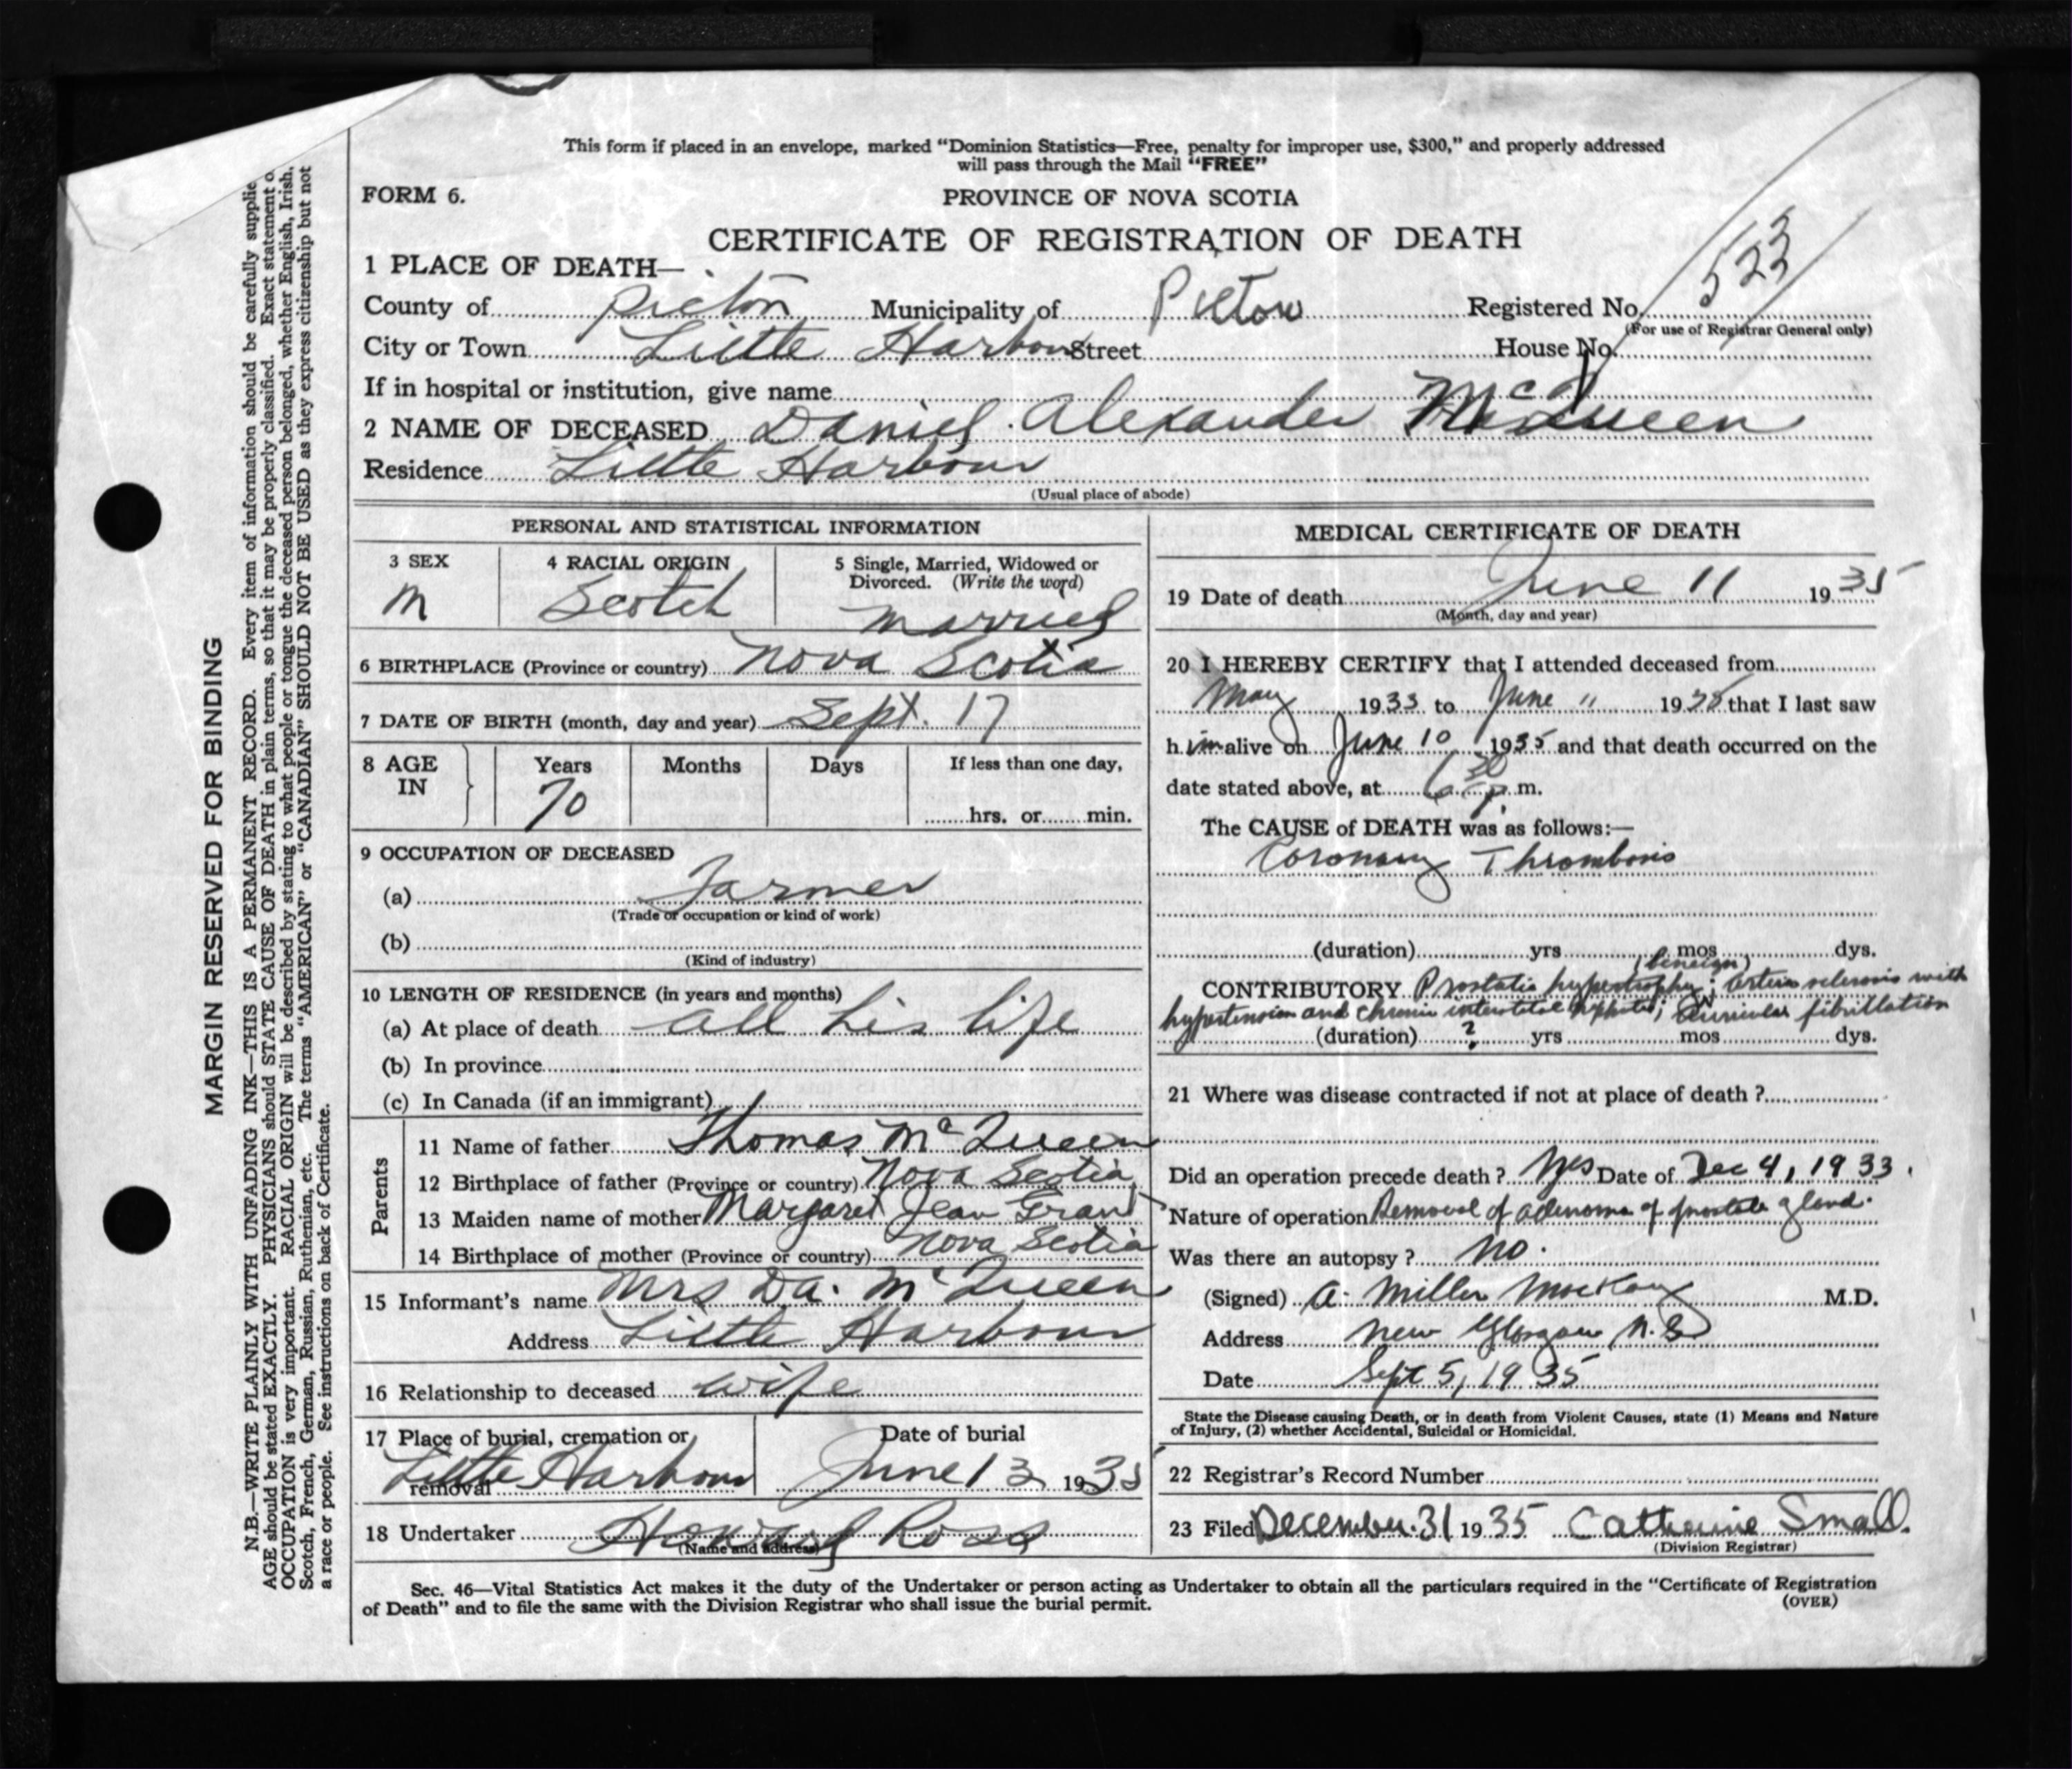 This form if placed in an envelope, marked “Dominion Statistics—Free, penalty for improper use, $300,” and properly addressed
will pass through the Mail “FREE”
FORM 6.
PROVINCE OF NOVA SCOTIA
CERTIFICATE OF REGISTRATION OF DEATH
1 PLACE OF DEATH—
County of Pictou Municipality of Pictou Registered No. 523
(For use of Registrar General only)
City or Town Little Harbour Street House No.
If in hospital or institution, give name
2 NAME OF DECEASED Daniel Alexander McQueen
Residence Little Harbour
(Usual place of abode)
PERSONAL AND STATISTICAL INFORMATION
3 SEX 4 RACIAL ORIGIN 5 Single, Married, Widowed or
Divorced. (Write the word)
M Scotch married
6 BIRTHPLACE (Province or country) Nova Scotia
7 DATE OF BIRTH (month, day and year) Sept. 17
8 AGE IN Years Months Days If less than one day,
70 hrs. or min.
9 OCCUPATION OF DECEASED
(a) Farmer
(Trade or occupation or kind of work)
(b)
(Kind of industry)
10 LENGTH OF RESIDENCE (in years and months)
(a) At place of death all his life
(b) In province
(c) In Canada (if an immigrant)
Parents
11 Name of father Thomas McQueen
12 Birthplace of father (Province or country) Nova Scotia
13 Maiden name of mother Margaret Jean Grant
14 Birthplace of mother (Province or country) Nova Scotia
15 Informant's name Mrs D.A. McQueen
Address Little Harbour
16 Relationship to deceased wife
17 Place of burial, cremation or Date of burial
removal Little Harbour June 13 1935
18 Undertaker Howard Ross
(Name and address)
MEDICAL CERTIFICATE OF DEATH
19 Date of death June 11 1935
(Month, day and year)
20 I HEREBY CERTIFY that I attended deceased from
May 1933 to June 11 1935 that I last saw
him alive on June 10 1935 and that death occurred on the
date stated above, at 6 30 p. m.
The CAUSE of DEATH was as follows:—
Coronary Thrombosis
(duration) yrs mos dys.
(benign)
CONTRIBUTORY Prostatic hypertrophy; Arterio sclerosis with
hypertension and chronic interstitial nephritis; Auricular fibrillation
(duration) ? yrs mos dys.
21 Where was disease contracted if not at place of death ?
Did an operation precede death ? Yes Date of Dec 4, 1933.
Nature of operation Removal of adenoma of prostate gland.
Was there an autopsy ? no.
(Signed) A. Miller MacKay M.D.
Address New Glasgow N.S.
Date Sept 5, 1935
State the Disease causing Death, or in death from Violent Causes, state (1) Means and Nature
of Injury, (2) whether Accidental, Suicidal or Homicidal.
22 Registrar's Record Number
23 Filed December 31 1935 Catherine Small.
(Division Registrar)
Sec. 46—Vital Statistics Act makes it the duty of the Undertaker or person acting as Undertaker to obtain all the particulars required in the “Certificate of Registration
of Death” and to file the same with the Division Registrar who shall issue the burial permit.
(OVER)
MARGIN RESERVED FOR BINDING
N.B.—WRITE PLAINLY WITH UNFADING INK—THIS IS A PERMANENT RECORD. Every item of information should be carefully supplie
AGE should be stated EXACTLY. PHYSICIANS should STATE CAUSE OF DEATH in plain terms, so that it may be properly classified. Exact statement o
OCCUPATION is very important. RACIAL ORIGIN will be described by stating to what people or tongue the deceased person belonged, whether English, Irish,
Scotch, French, German, Russian, Ruthenian, etc. The terms “AMERICAN” or “CANADIAN” SHOULD NOT BE USED as they express citizenship but not
a race or people. See instructions on back of Certificate.